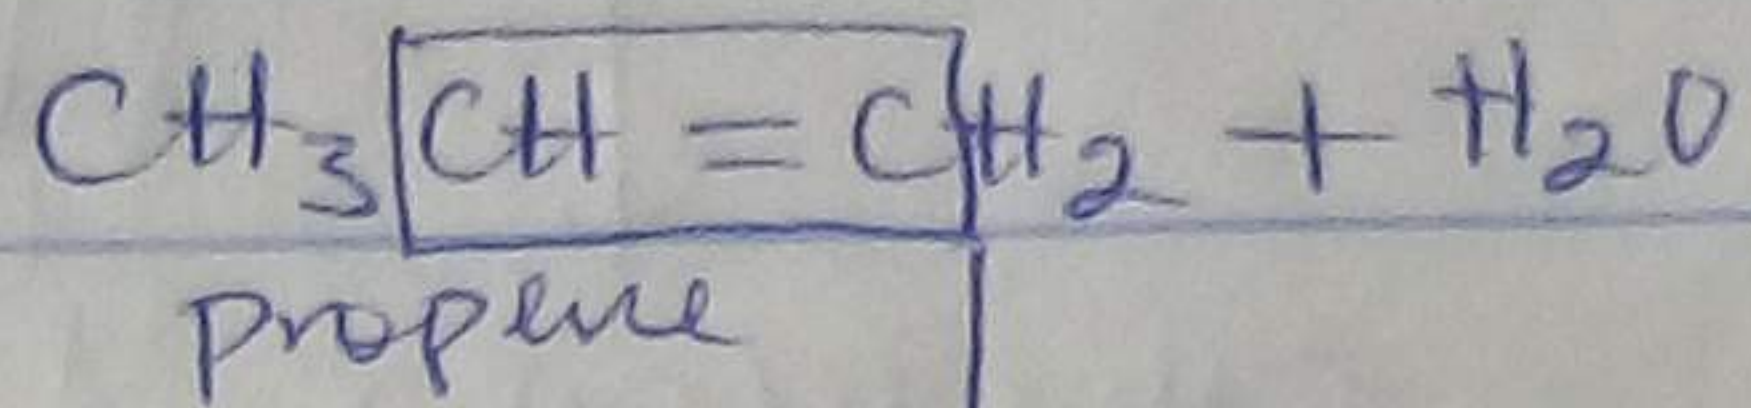 CH₃CH = CH₂ + H₂O
propene